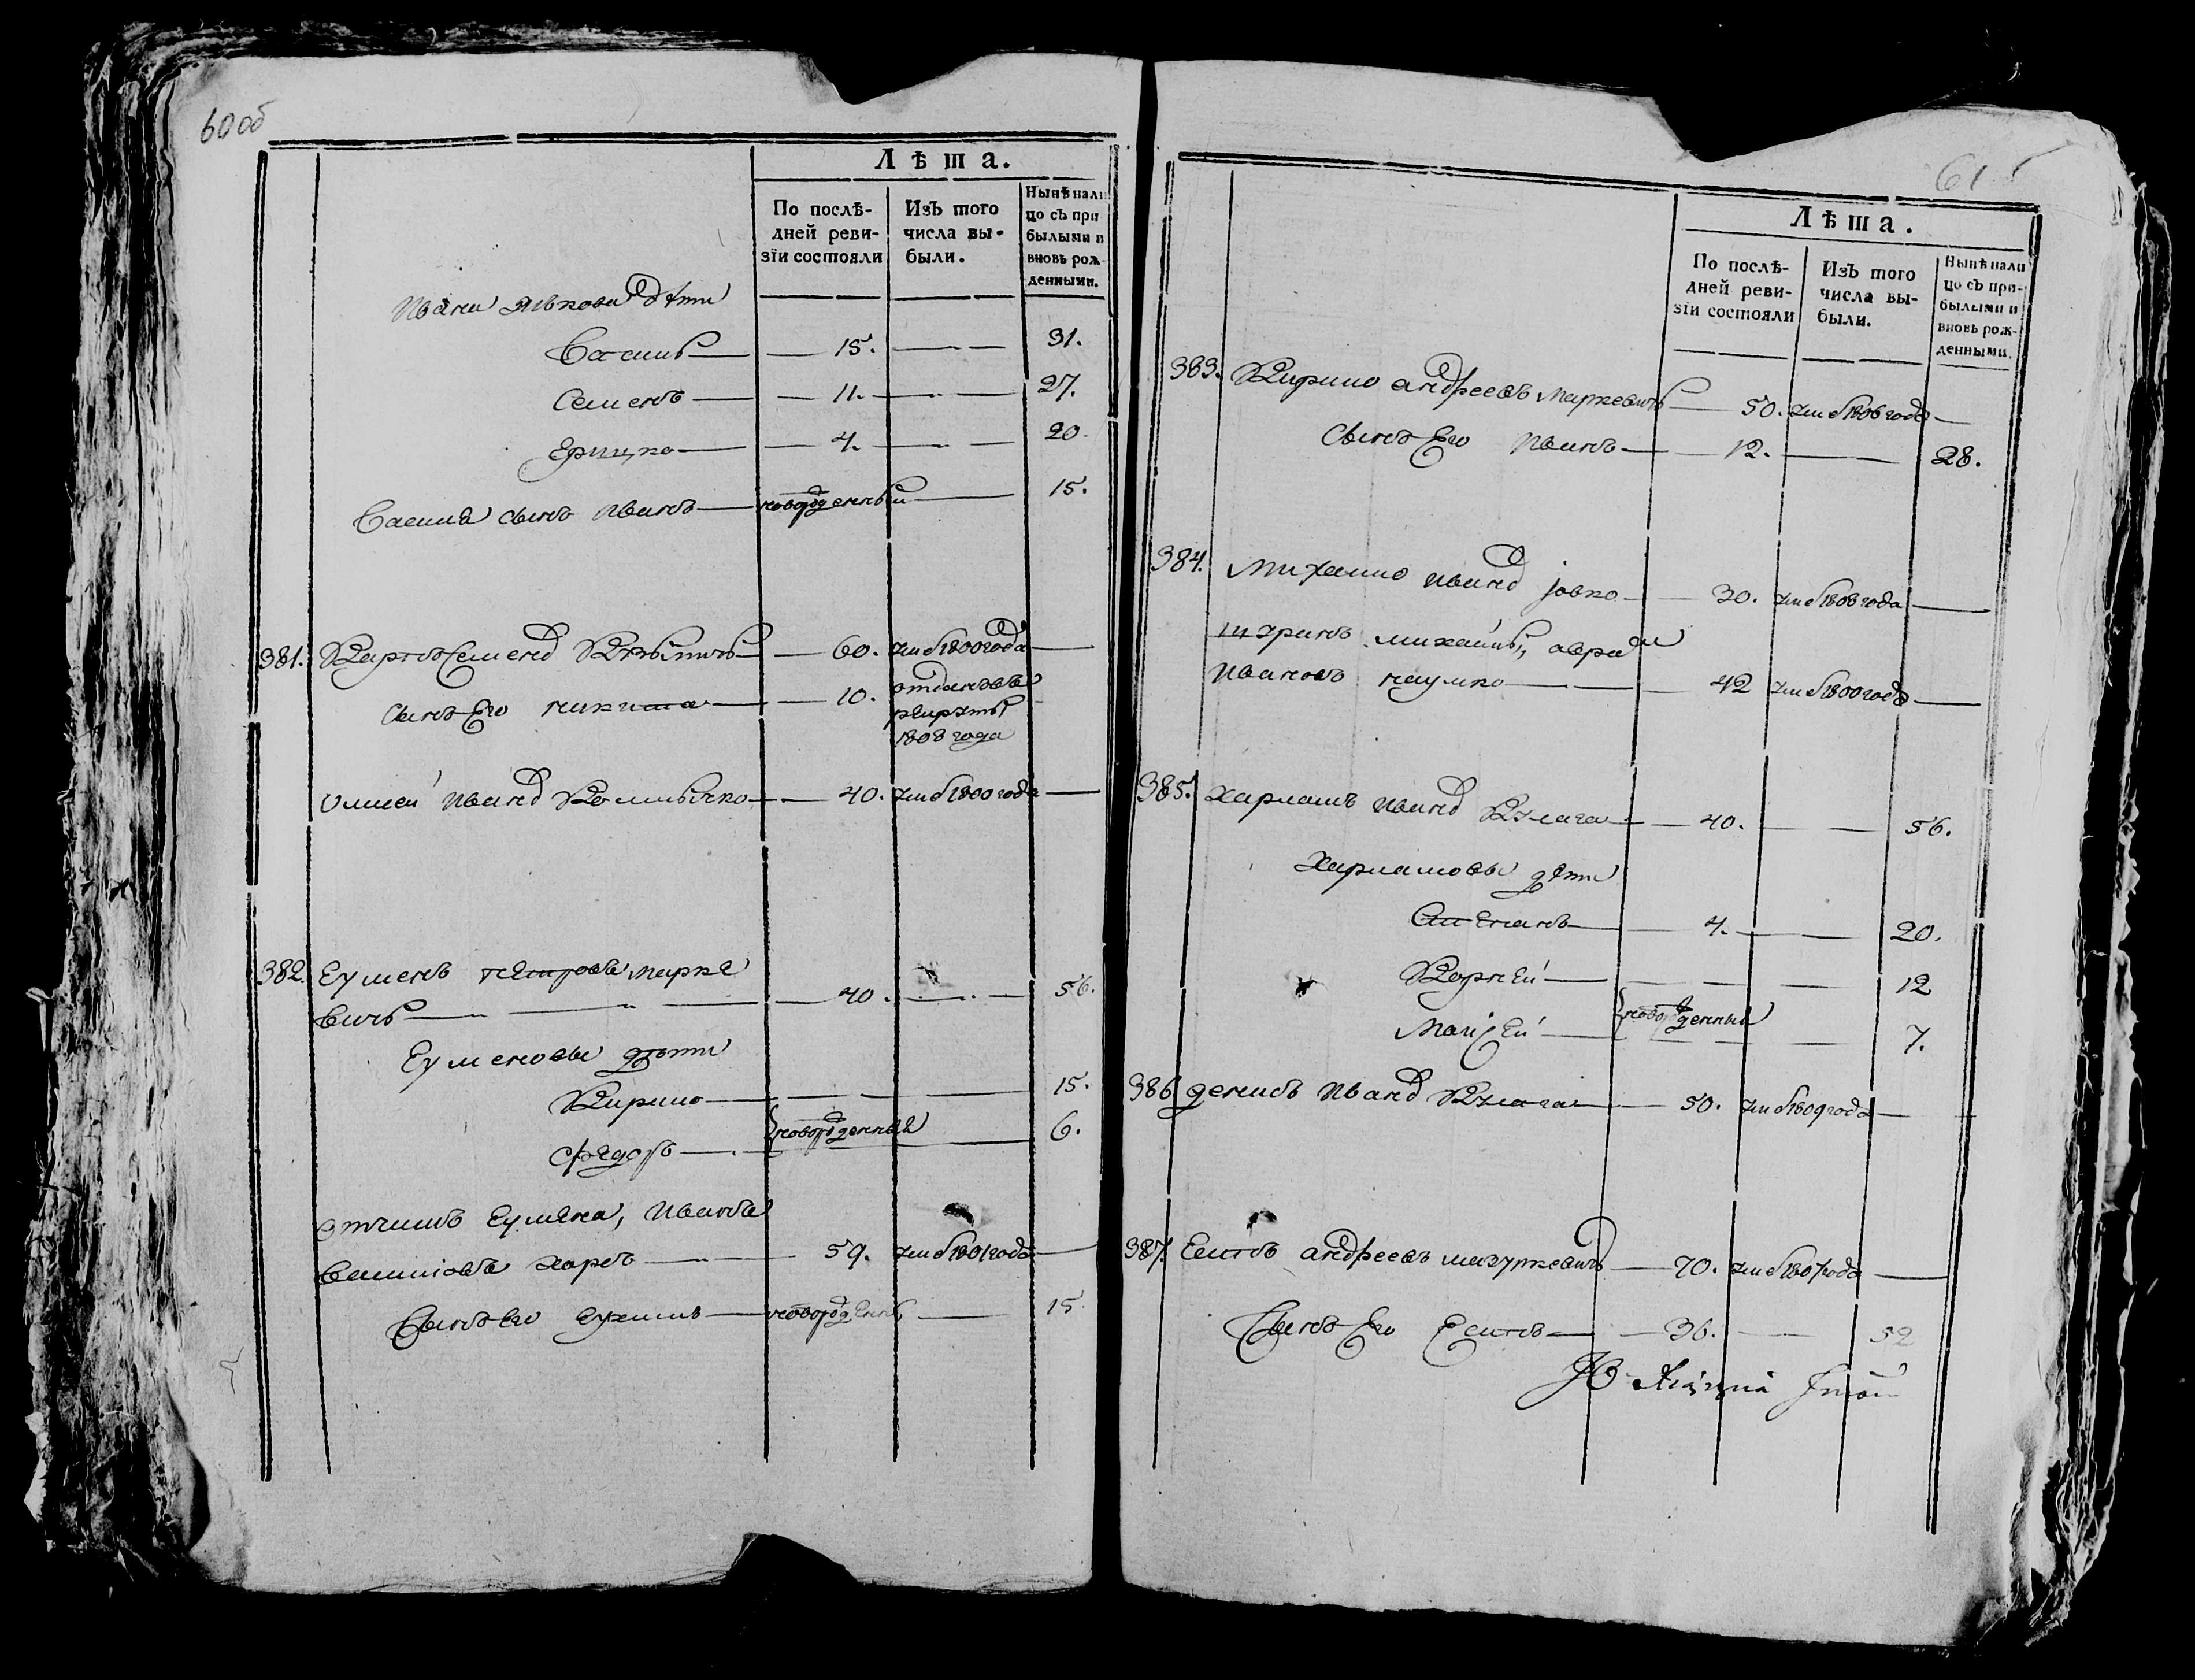 60 об
Лѣта.
По послѣ-
дней реви-
зїи состояли
Изъ того
числа вы-
были.
Нынѣ нали
цо съ при
былыми и
вновь рож-
денными.
Ивана дѣти
Василь 15. 31.
Семенъ 11. 27.
Грицко 4. 20.
Василя сынъ Иванъ новорожденный 15.
381. Карпъ Семенов 60. умеръ 1800 года
сынъ Его никита 10. отданъ въ
рекруты
1808 года
Иванов 40. умеръ 1800 года
382. Еуменъ петровъ марке
вичъ 40. 56.
Еуменовы дѣти
Кирило 15.
новорожденныя
Федоръ 6.
отчимъ Еумена, Иванъ
59. умеръ 1801 года
Сынъ Его новорожденъ 15.
61
Лѣта.
По послѣ-
дней реви-
зїи состояли
Изъ того
числа вы-
были.
Нынѣ нали
цо съ при-
былыми и
вновь рож-
денными.
383. Кирило андреевъ маркевичъ 50. умеръ 1806 года
сынъ Его Иванъ 12. 28.
384. Михайло Иванов 30. умеръ 1808 года
шуринъ михайлы,
Ивановъ наумко 42 умеръ 1800 года
385. Харлампъ Иванов Кулага 40. 56.
Харламповы дѣти
Степанъ 4. 20.
Корней 12
новорожденныи
Моисей 7.
386 денисъ Иванов Кулага 50. умеръ 1809 года
387. андреевъ мазуркевичъ 70. умеръ 1807 года
Сынъ Его 36. 52